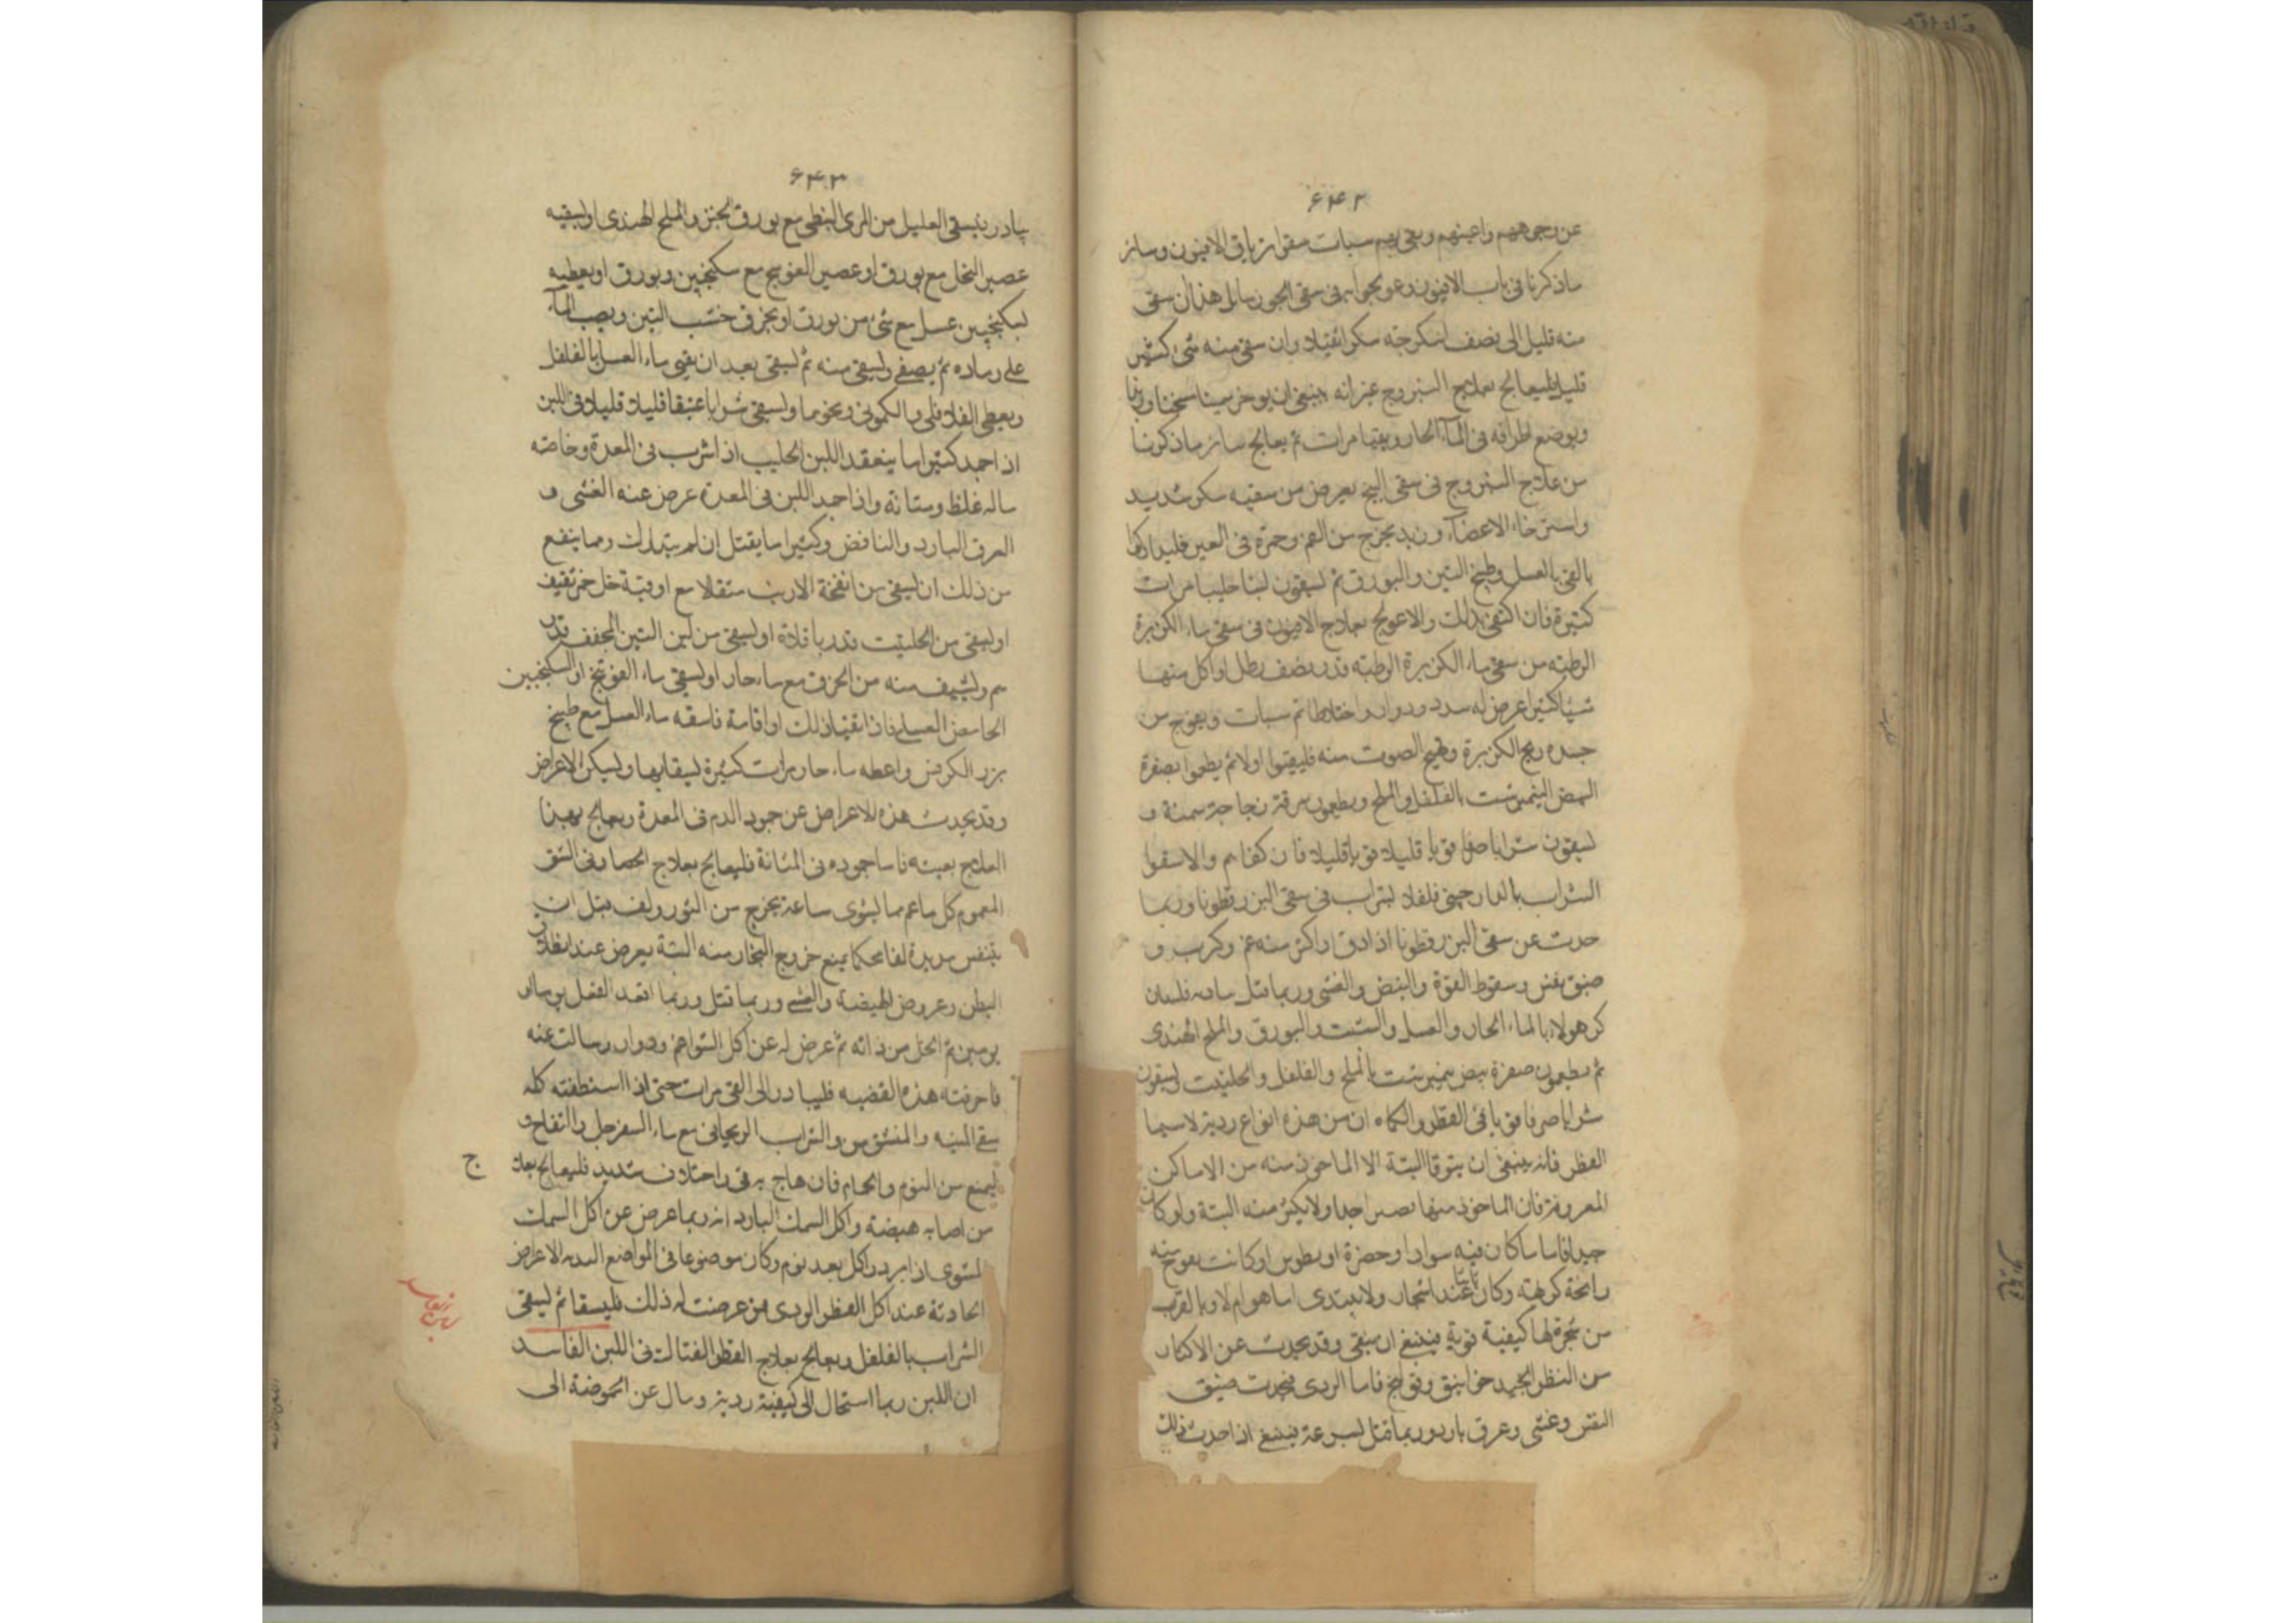 ۶۴۲
عن وجوههم واعينهم وبقى بهم سبات سقوا ترياق الافيون وسائر
ما ذكرنا فى باب الافيون وعولجوا به فى سقى الجوز ماثل هذا ان سقى
منه قليل الى نصف اسكرجة سكرا ثقيلا وان سقى منه شىء كثير
قليلا فليعالج بعلاج اليبروج غير انه ينبغى ان يوخذ سمنا سخنا
ويوضع اطرافه فى المآء الحار ويقيا مرات ثم يعالج سائر ما ذكرنا
من علاج اليبروج فى سقى البنج يعرض من سقيه سكر شديد
واسترخاء الاعضآء وزبد يخرج من الفم وحمرة فى العين فليبادر
بالقى بالعسل وطبيخ التين والبورق ثم يسقون لبنا حليبا مرات
كثيرة فان اكتفى بذلك والا عولج بعلاج الافيون فى سقى ماء الكزبرة
الرطبة من سقى ماء الكزبرة الرطبة قدر نصف رطل او اكل منها
شيئا كثيرا عرض له سدر ودوار واختلاط ثم سبات ويفوح من
جسده ريح الكزبرة ويبح الصوت منه فليقيئوا اولا ثم يطعموا بصفرة
البيض النيمبرشت بالفلفل والملح ويطعمون مرقة دجاجة سمنة و
يسقون شرابا صرفا قويا قليلا قويا قليلا فان كفاهم والا سقوا
الشراب بالدارصينى فلفلا بشراب فى سقى البزرقطونا وربما
حدث عن سقى البزرقطونا اذا دق او اكثر منه غم وكرب و
ضيق نفس وسقوط القوة والنبض والغشى وربما قتل
هولاء بالماء الحار والعسل والشبت والبورق والملح الهندى
ثم يطعمون صفرة بيض نيمبرشت بالملح والفلفل والحلتيت ويسقون
شرابا صرفا قويا فى الفطر والكماه ان من هذه انواع ردية لاسيما
الفطر فانه ينبغى ان يتوقا البتة الا الماخوذ منه من الاماكن
المعروفة فان الماخوذ منها ولا يكثر منه البتة
جيدا فاما ما كان فيه سوادا وخضرة او كانت يفوح منه
رائحة كرهية وكان نابتا عند اشجار
من شجرة لها كيفية قوية فينبغى ان يتقى وقد يحدث عن الاكثار
من الفطر الجيد خوانيق وقولنج فاما الردى فيحدث ضيق
النفس وغشى وعرق بارد وربما قتل بسرعة فينبغى اذا حدث ذلك
۶۴۳
يبادر يسقى العليل من المرى النبطى مع بورق الخبز والملح الهندى او يسقيه
عصير الفجل مع بورق او عصير الفوتنج مع سكنجبين وبورق او يعطيه
سكنجبين عسل مع شىء من بورق او يحرق خشب التين ويصب المآء
على رماده ثم يصفى ويسقى منه ثم يسقى بعد ان يقيى ماء العسل بالفلفل
ويعطى الفلافلى والكمونى ونحوهما ويسقى شرابا عتيقا قليلا قليلا فى اللبن
اذا جمد كثيرا ما ينعقد اللبن الحليب اذا شرب فى المعدة وخاصة
ماله غلظ ومتانة واذا جمد اللبن فى المعدة عرض عنه الغشى و
العرق البارد والنافض وكثيرا ما يقتل ان لم يتدارك ومما ينفع
من ذلك ان يسقى من انفخة الارنب مثقلا مع اوقية خل خمر ثقيف
او يسقى من الحلتيت قدر باقلاة او يسقى من لبن التين المجفف قدر
من الحرف مع ماء حار او يسقى ماء الفوتنج او السكنجبين
الحامض العسلى فاذا تقيا ذلك او اقامه فاسقه ماء العسل مع طبيخ
بزر الكرفس واعطه ماء حار مرات كثيرة ليتقايها ويسكن الاعراض
وقد يحدث هذه الاعراض عن جمود الدم فى المعدة ويعالج بهذا
العلاج بعينه فاما جموده فى المثانة فليعالج بعلاج الحصا وفى الشوى
المغموم كل ما غم مما يشوى ساعة يخرج من التنور ولف قبل ان
يتنفس لفا محكما يمنع خروج البخار منه البتة يعرض عند انطلاق
البطن وعروض الهيضة والغشى وربما قتل وربما افقد العقل يوما او
يومين ثم انحل من ذاته ثم عرض له عن اكل الشوا غم ودوار وسالت عنه
فاعرفته هذه القضية فليبادر الى القى مرات حتى اذا استنظفته كله
سقى الميبه والشراب الريحانى مع ماء السفرجل والتفاح و
يمنع من النوم والحمام فان هاج به قى واختلاف شديد فليعالج بعلا
ج
من اصابه هيضة واكل السمك البارد انه ربما عرض عن اكل السمك
المشوى اذا برد واكل بعد نوم وكان موضوعا فى المواضع الندية الاعراض
الحادثة عند اكل الفطر الردى فمن عرضت له ذلك فليسقا ثم ليسقى
الشراب بالفلفل ويعالج بعلاج الفطر القتال فى اللبن الفاسد
ان اللبن ربما استحال الى كيفية ردية ومال عن الحموضة الى